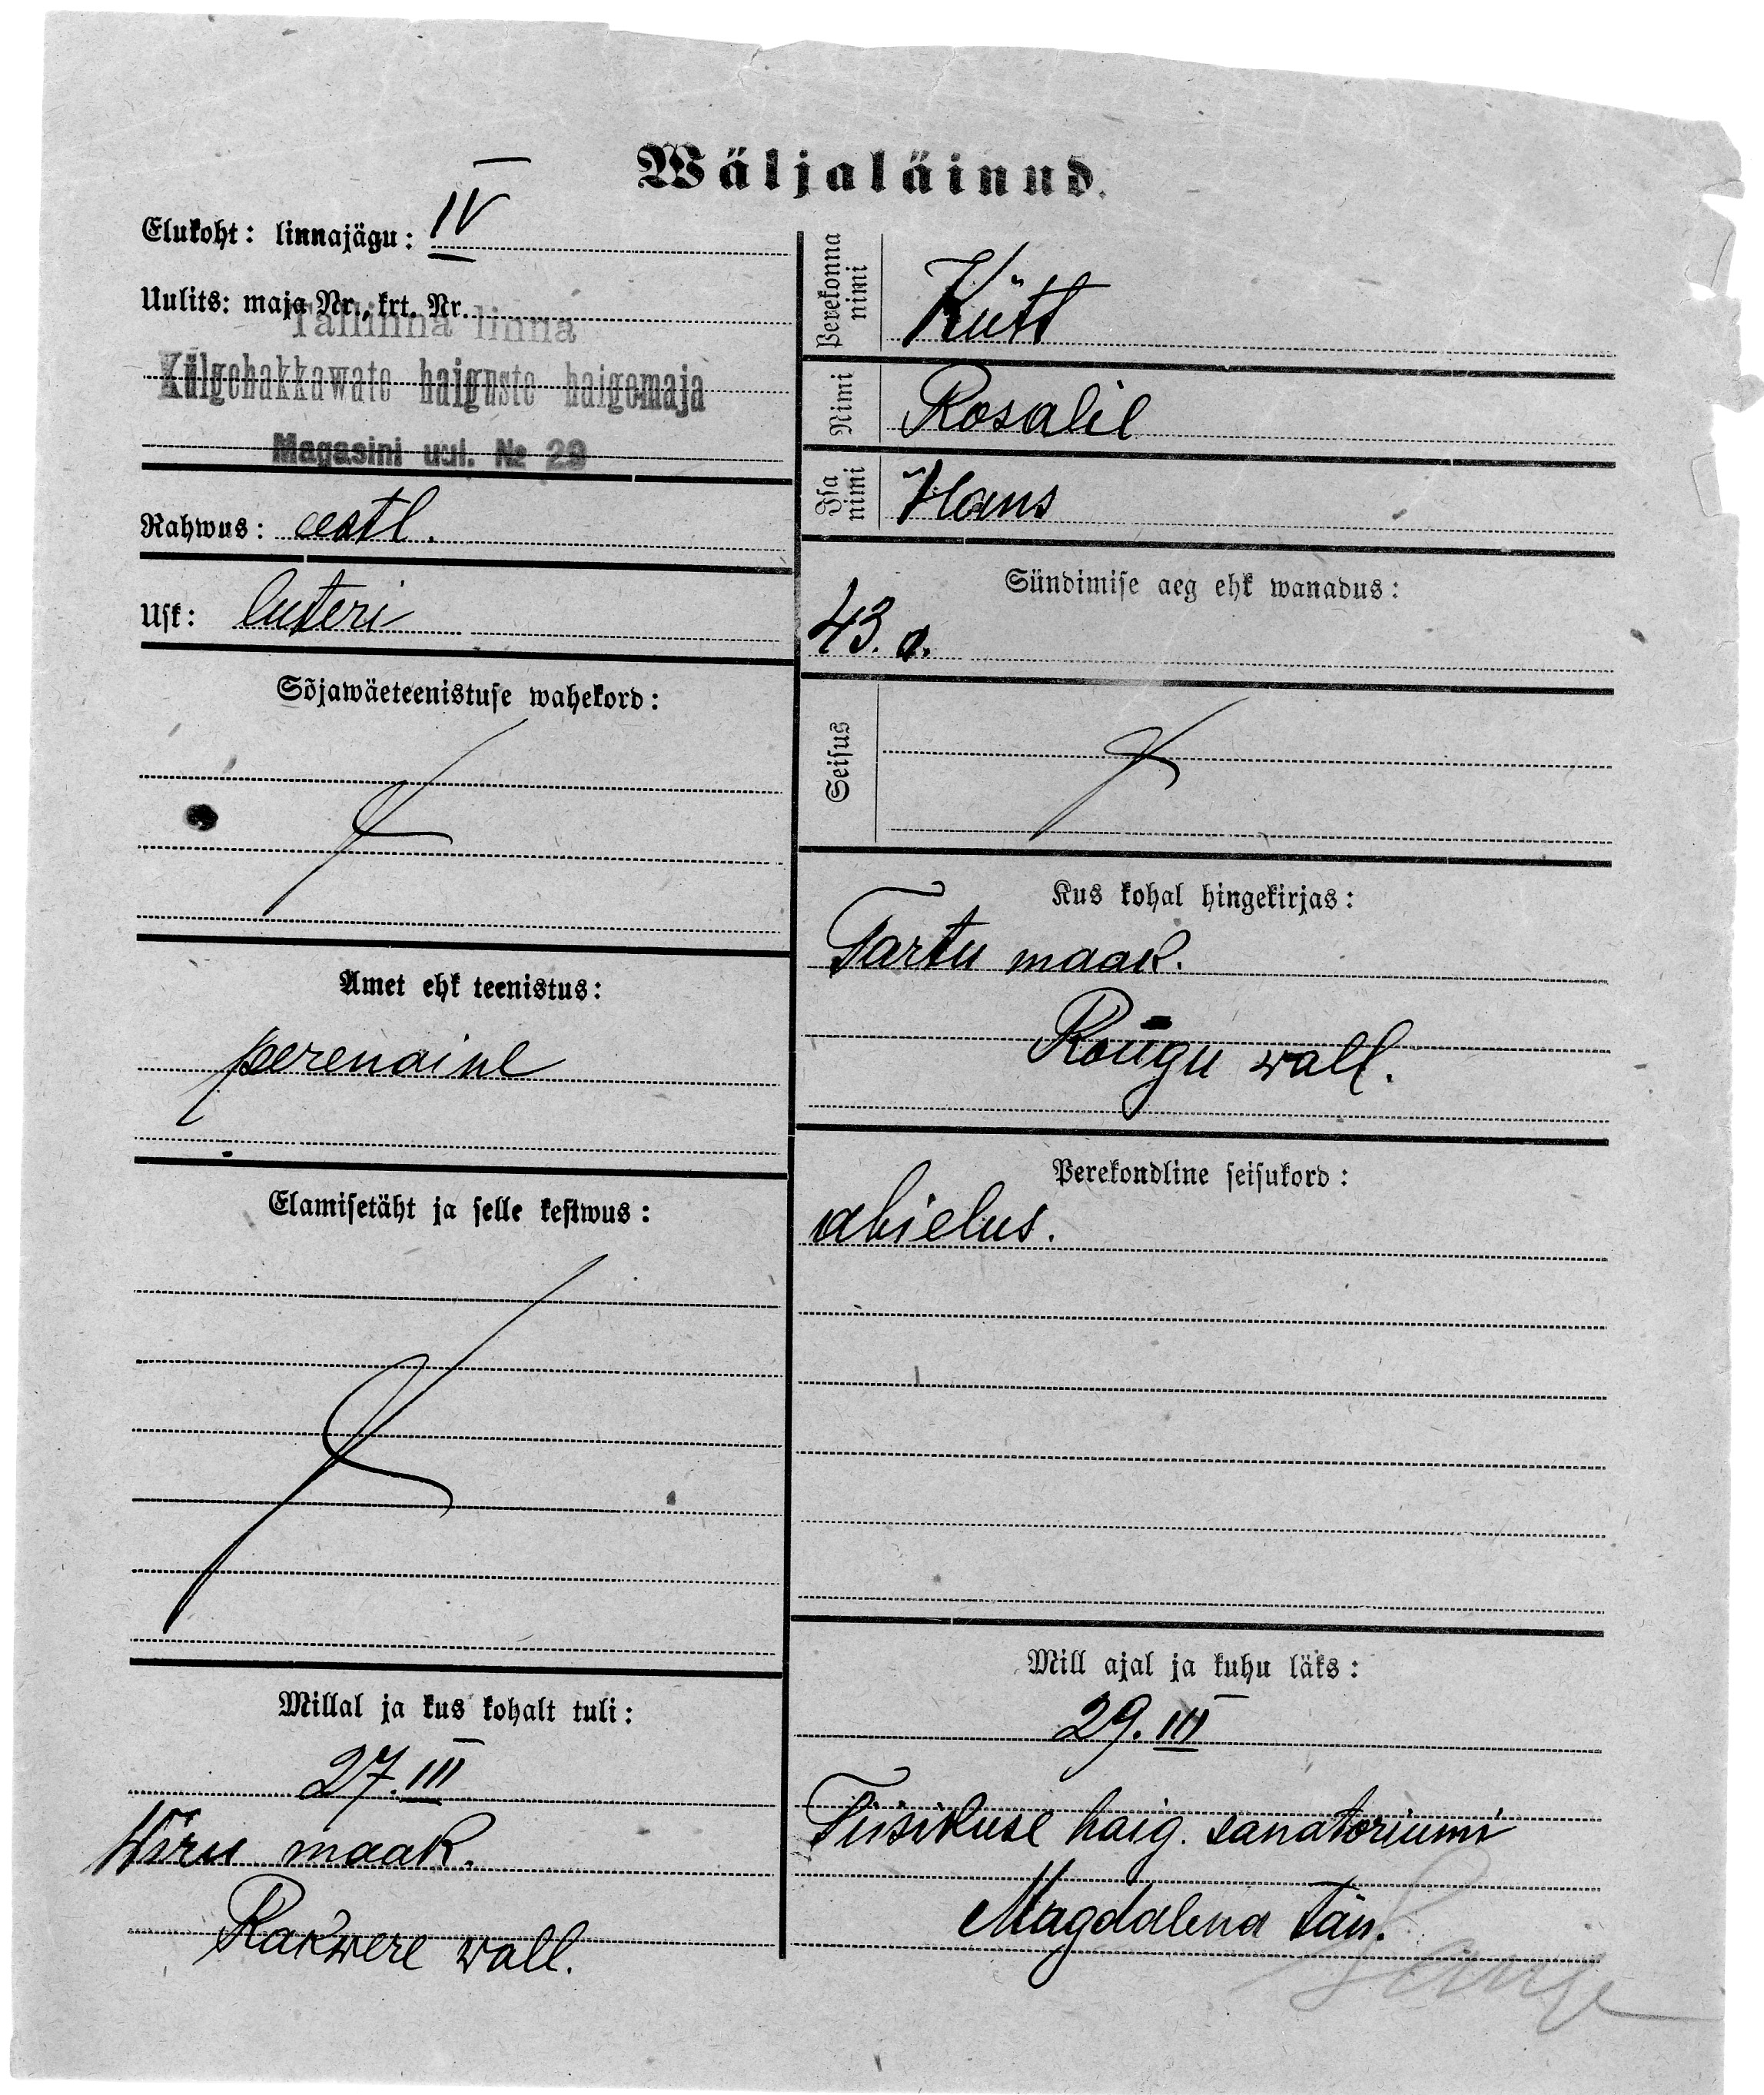 Wäljaläinud.
Elukoht: linnajägu: IV
Uulits: maja Nr., krt. Nr.
Tallinna linna
Külgehakkawate haiguste haigemaja
Magasini uul. № 29
Rahwus: eestl.
Usk: luteri
Sõjawäeteenistuse wahekord:
Amet ehk teenistus:
perenaine
Elamisetäht ja selle kestwus:
Millal ja kus kohalt tuli:
27.III
Wiru maak.
Rakwere wall.
Perekonna nimi Kütt
Nimi Rosalie
Isa nimi Hans
Sündimise aeg ehk wanadus:
43. a.
Seisus
Kus kohal hingekirjas:
Tartu maak.
Rõngu wall.
Perekondline seisukord:
abielus.
Mill ajal ja kuhu läks:
29.III
Tiisikuse haig. sanatoriumi
Magdalena tän.